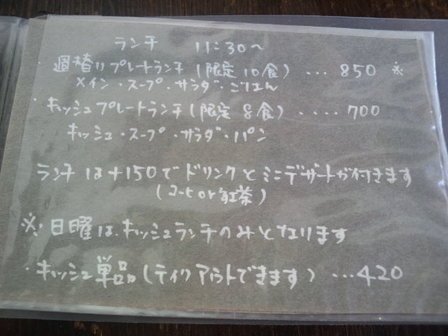 ランチ 11:30〜
・週替りプレートランチ(限定10食)...850 ※
メイン・スープ・サラダ・ごはん
・キッシュプレートランチ(限定8食)....700
キッシュ・スープ・サラダ・パン
ランチは+150でドリンクとミニデザートが付きます
(コーヒーor紅茶)
※日曜はキッシュランチのみとなります
・キッシュ単品(テイクアウトできます)...420